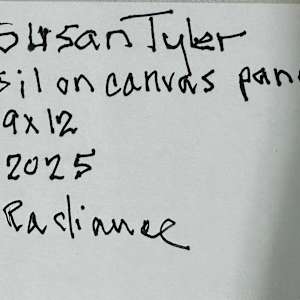 Susan Tyler
oil on canvas pane
9x12
2025
Radiance